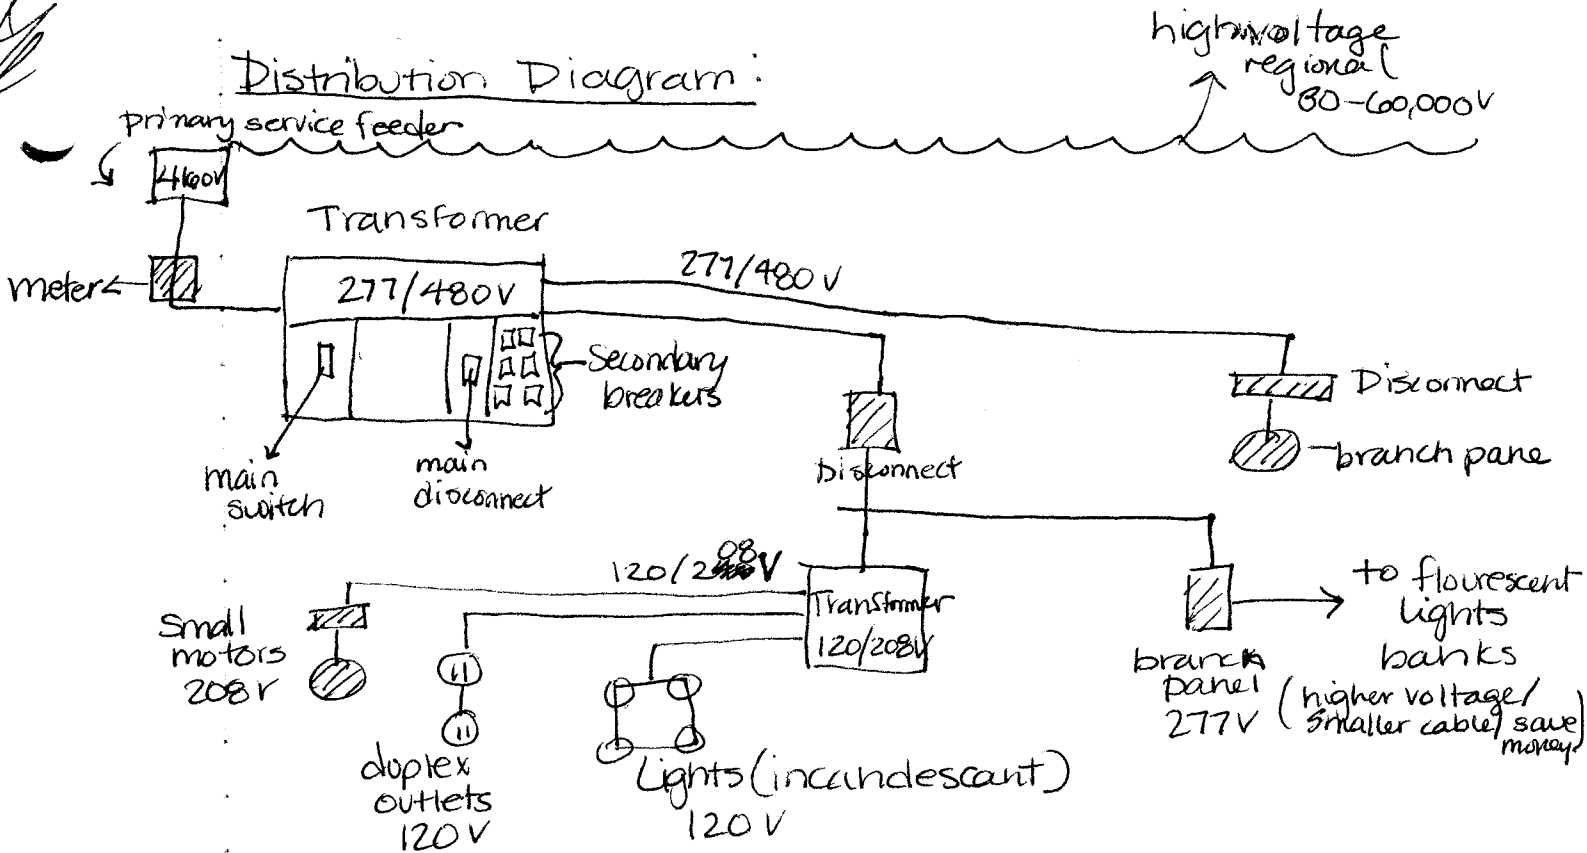 Distribution Diagram:
high voltage
regional
80-60,000V
primary service feeder
4160V
Transformer
meter
277/480V
277/480V
Secondary
breakers
Disconnect
branch pane
main
switch
main
disconnect
Disconnect
120/208V
Transformer
120/208V
Small
motors
208V
duplex
outlets
120V
Lights (incandescant)
120V
branch
panel
277V
to flourescent
lights
banks
(higher voltage/
smaller cable/save
money)